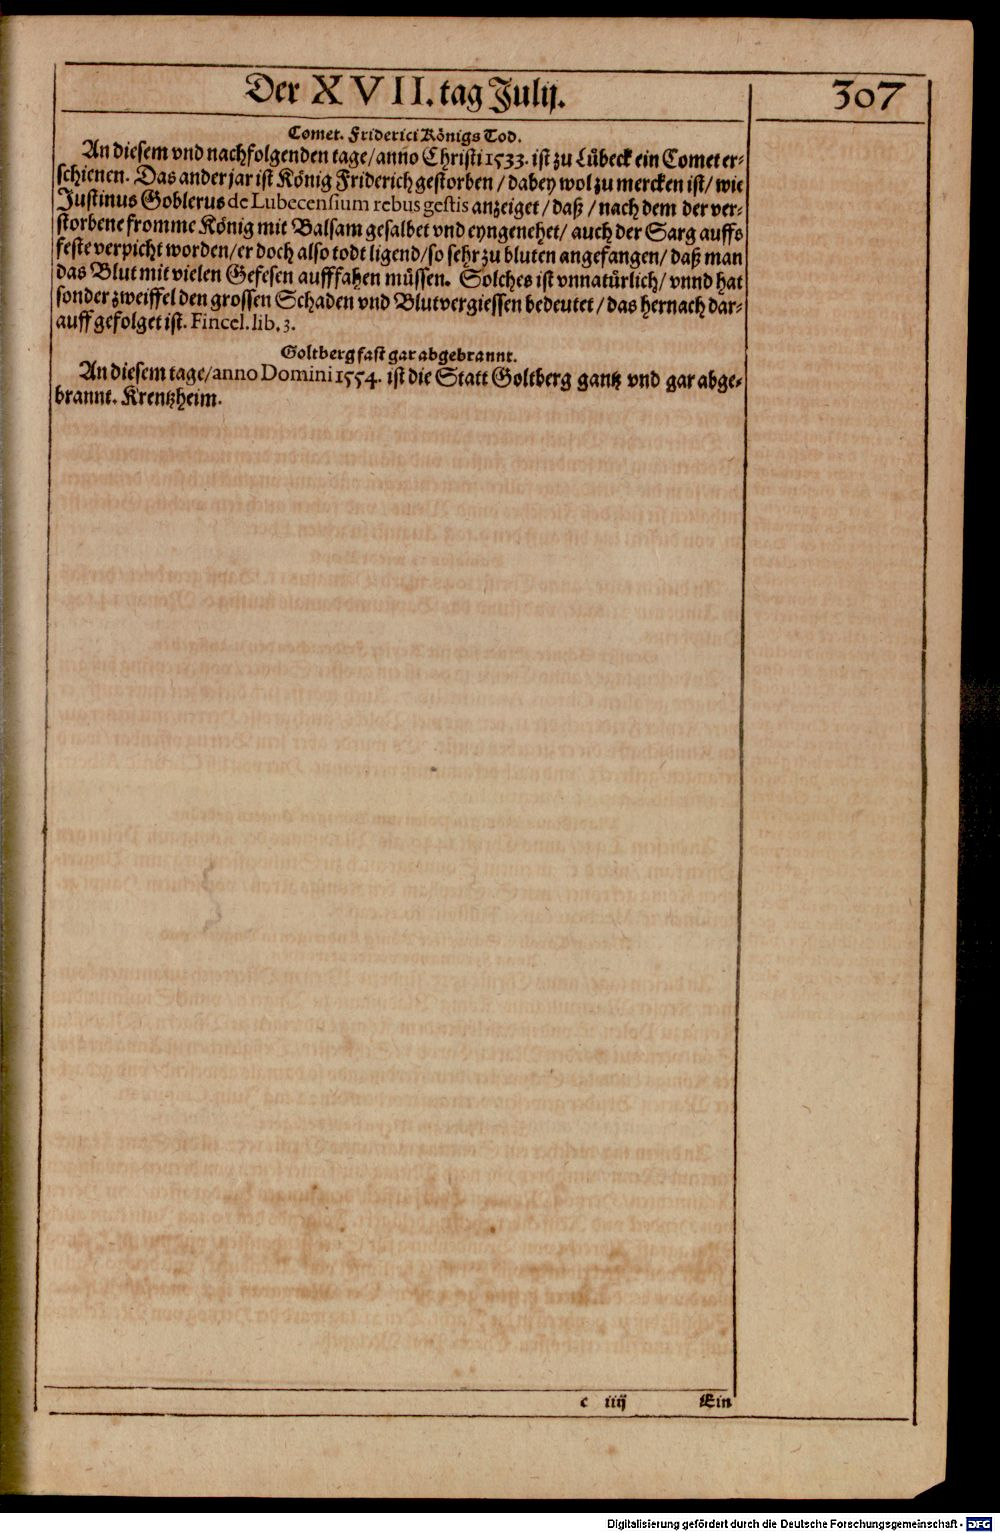 Der XVII. tag Julij.
307
Comet. Friderici Königs Tod.
An diesem vnd nachfolgenden tage/anno Christi 1533. ist zu Lübeck ein Comet er-
schienen. Das ander jar ist König Friderich gestorben / dabey wol zu mercken ist/ wie
Justinus Goblerus de Lubecensium rebus gestis anzeiget / daß / nach dem der ver-
storbene fromme König mit Balsam gesalbet vnd eyngenehet/ auch der Sarg auffs
feste verpicht worden/er doch also todt ligend/so sehr zu bluten angefangen/ daß man
das Blut mit vielen Gefesen aufffahen müssen. Solches ist vnnatürlich/ vnnd hat
sonder zweiffel den grossen Schaden vnd Blutvergiessen bedeutet / das hernach dar-
auff gefolget ist. Fincel. lib. 3.
Goltberg fast gar abgebrannt.
An diesem tage/anno Domini 1554. ist die Statt Goltberg gantz vnd gar abge-
brannt. Krentzheim.
c iiij
Ein
Digitalisierung gefördert durch die Deutsche Forschungsgemeinschaft - DFG